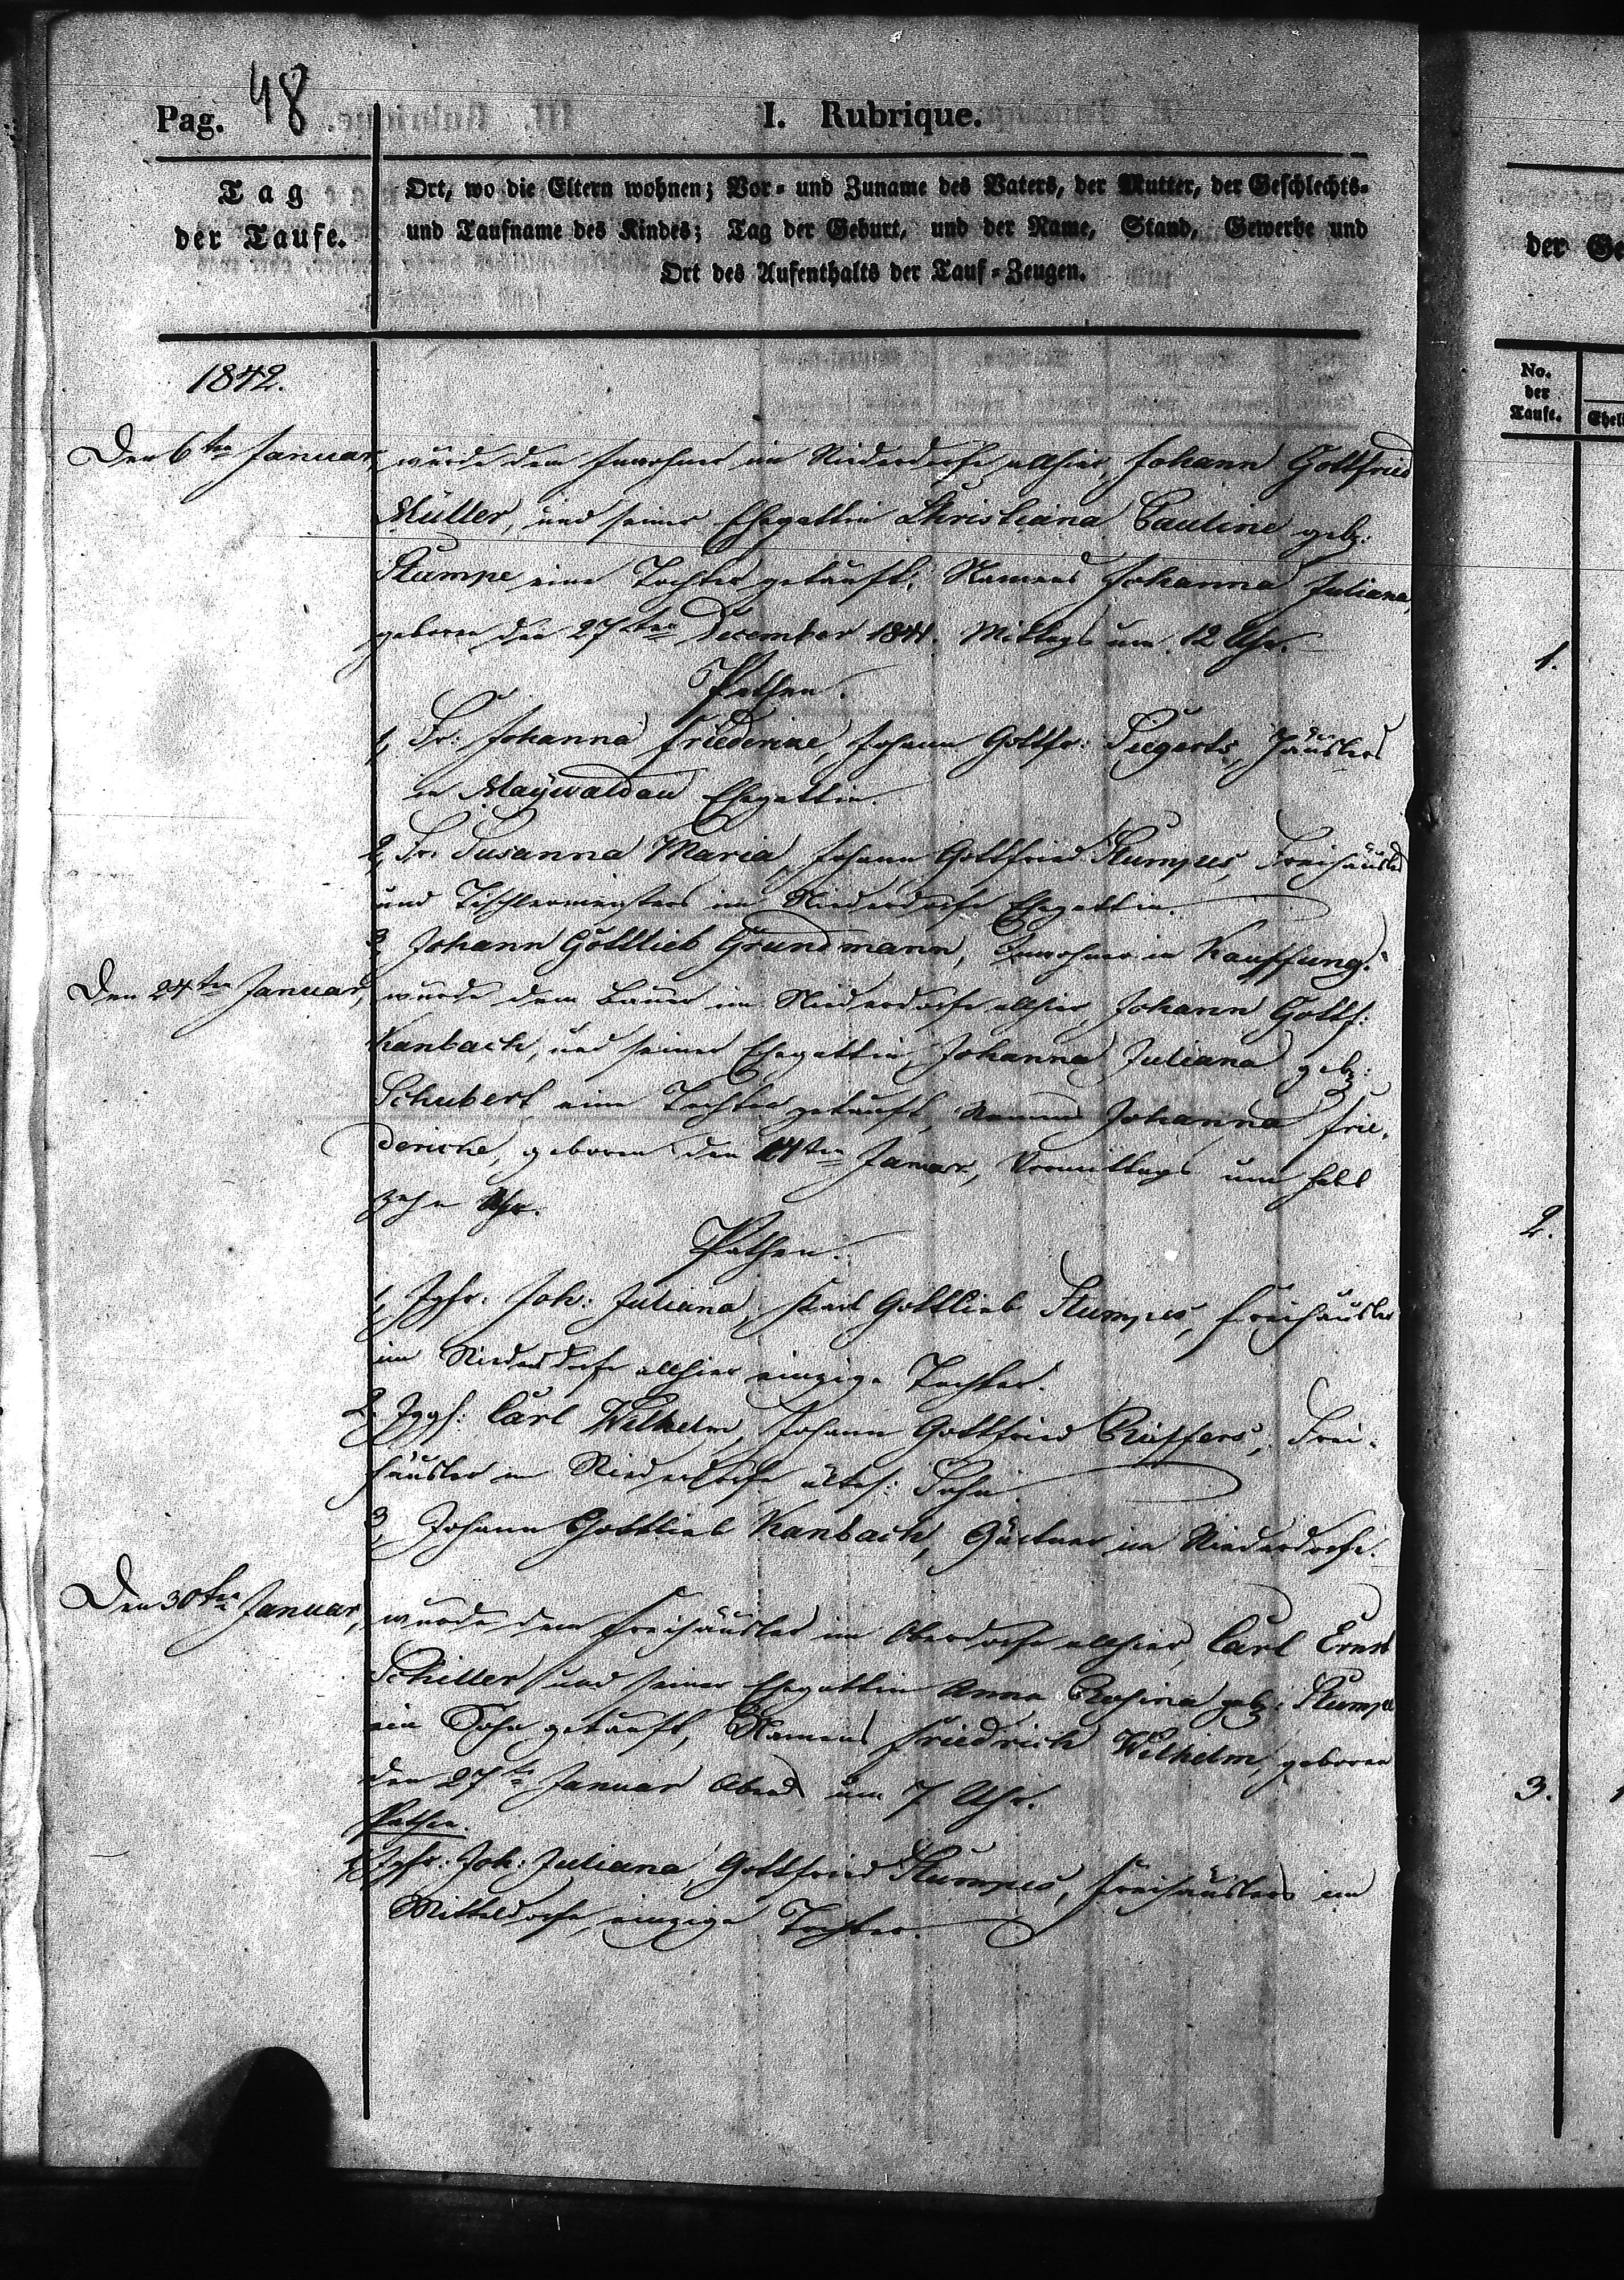 Pag. 48
I. Rubrique.
Tag
der Taufe.
Ort, wo die Eltern wohnen; Vor- und Zuname des Vaters, der Mutter, der Geschlechts-
und Taufname des Kindes; Tag der Geburt, und der Name, Stand, Gewerbe und
Ort des Aufenthalts der Tauf-Zeugen.
der
No.
der
Taufe.
1842.
Den 6ten Januar, wurde dem Inwohner im Niederdorfe allhier, Johann Gottfried
Müller, und seiner Ehegattin Christiana Pauline geb:
Stumpe eine Tochter getauft, Namens Johanna Juliana,
geboren den 27ten December 1841. Mittags um 12 Uhr.
1.
Pathen.
1, Fr: Johanna Friedericke, Johann Gottfr: Siegerts, Häuslers
in Maywaldau Ehegattin.
2, Fr: Susanna Maria, Johann Gottfried Stumpes, Freihäuslers
und Tischlermeisters im Niederdorfe Ehegattin.
3, Johann Gottlieb Grundmann, Inwohner in Kauffung.
Den 24ten Januar, wurde dem Bauer im Niederdorfe allhier, Johann Gottf:
Kanbach, und seiner Ehegattin, Johanna Juliana geb:
Schubert eine Tochter getauft, Namens Johanna Frie-
dericke, geboren den 14ten Januar, Vormittags um halb
zehn Uhr.
2.
Pathen.
1, Jgfr. Joh: Juliana, Karl Gottlieb Stumpes, Freihäusler
im Niederdorfe allhier einzige Tochter.
2. Jggs: Carl Wilhelm, Johann Gottfried Frei-
häusler in Niederdorfe ältes: Sohn
3, Johann Gottlieb Kanbach, Gärtner im Niederdorfe.
Den 30ten Januar, wurde dem Freihäusler im Oberdorfe allhier, Carl Ernst
Schiller und seiner Ehegattin Anna Rosina geb: Stumpe
ein Sohn getauft, Namens Friedrich Wilhelm, geboren
den 27ten Januar Abends um 7 Uhr.
3.
Pathen.
1, Jgfr: Joh: Juliana, Gottfried Stumpes, Freihäuslers im
Mitteldorfe, einzige Tochter.